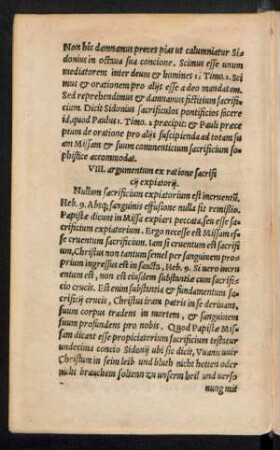 Non hic damnamus preces pias ut calumniatur Si-
donius in octaua sua concione. Scimus esse unum
mediatorem inter deum & homines 1. Timo. 2. Sci
mus & orationem pro alijs esse a deo mandatam.
Sed reprehendimus & damnamus fictitium sacrifi-
cium. Dicit Sidonius sacrificulos pontificios facere
id, quod Paulus 1. Timo. 2 præcipit: & Pauli præce
ptum de oratione pro alijs suscipienda ad totam su
am Missam & suum commenticium sacrificium so-
phistice accommodat.
VIII. argumentum ex ratione sacrifi
cij expiatorij.
Nullum sacrificium expiatorium est incruentũ.
Heb. 9. Absq; sanguinis effusione nulla fit remissio.
Papistæ dicunt in Missa expiari peccata, seu esse sa-
crificium expiatorium. Ergo necesse est Missam es-
se cruentum sacrificium. Iam si cruentum est sacrifi-
um, Christus non tantum semel per sanguinem pro
prium ingressus est in sancta, Heb. 9. Si uero incru-
entum est, non est eiusdem substantiæ cum sacrifi-
cio crucis. Est enim substantia & fundamentum sa-
crificij crucis, Christus iram patris in se deriuans,
suum corpus tradens in mortem, & sanguinem
suum profundens pro nobis. Quod Papistæ Mis-
sam dicant esse propiciatorium sacrificium testatur
undecima concio Sidonij ubi sic dicit, Vuann wir
Christum in seim leib und bluth nicht hetten oder
nicht brauchem soltenn zů unserm heil und versů
nung mit